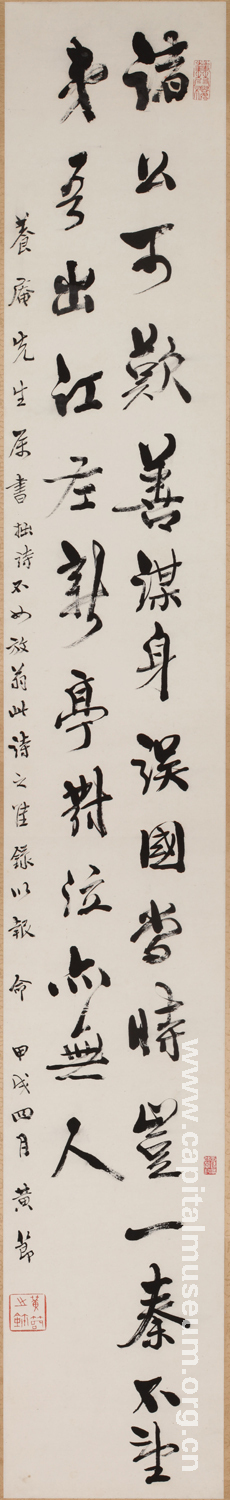 諸公可歎善謀身誤國當時豈一秦不望
夷吾出江左新亭對泣亦無人
養庵先生屬書拙詩不如放翁此詩之佳錄以報命 甲戌四月黃節
www.capitalmuseum.org.cn